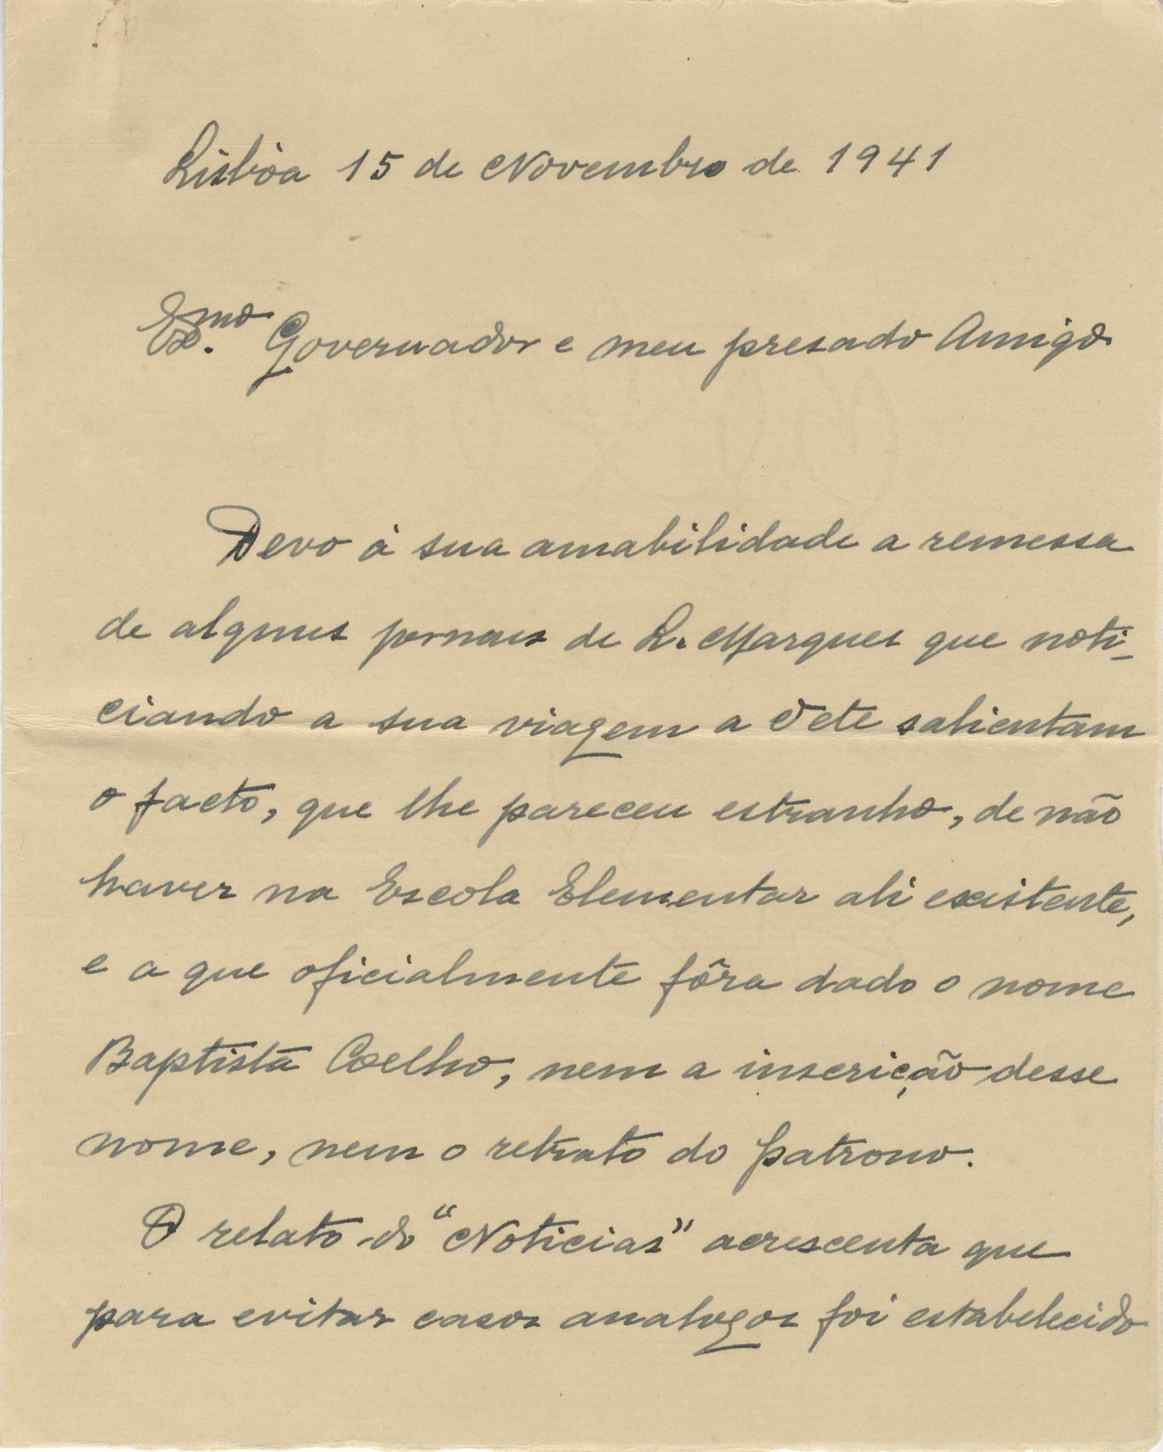 Lisbôa 15 de Novembro de 1941
Exmo. Governador e meu presado Amigo
Devo á sua amabilidade a remessa
de alguns jornais de L. Marques que noti-
ciando a sua viagem a Tete salientam
o facto, que lhe pareceu estranho, de não
haver na Escola Elementar ali existente,
e a que oficialmente fôra dado o nome
Baptista Coelho, nem a inscrição desse
nome, nem o retrato do patrono.
O relato do "Noticias" acrescenta que
para evitar casos analogos foi estabelecido